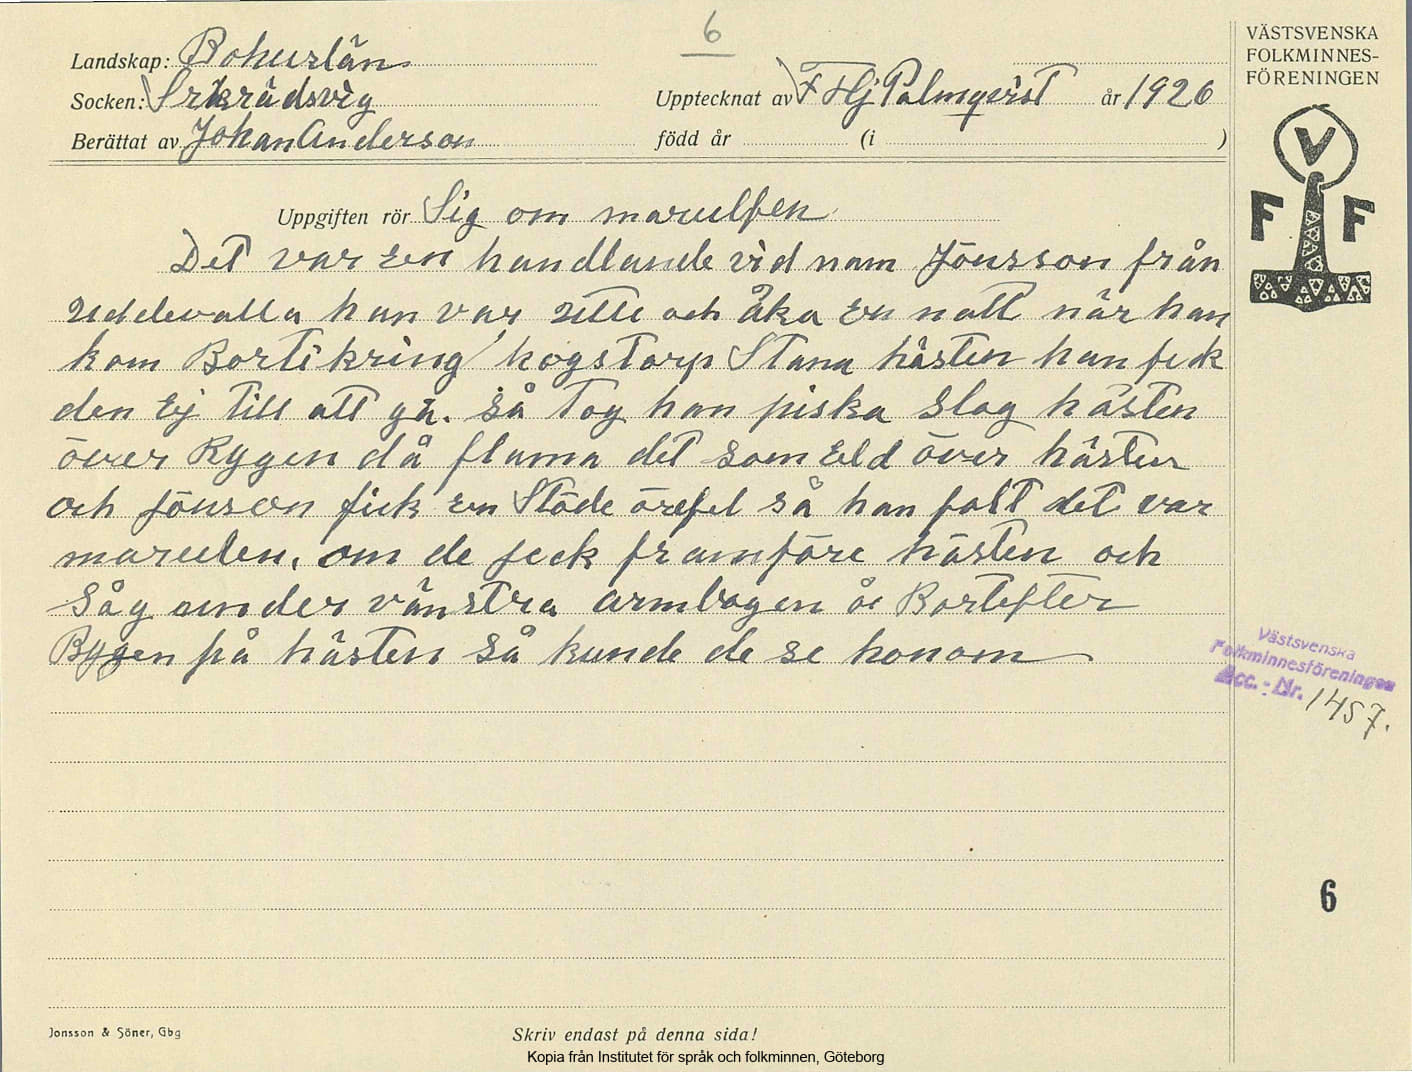 6
VÄSTSVENSKA
FOLKMINNES-
FÖRENINGEN
Landskap: Bohuslän
Socken:
Upptecknat av F Hj Palmqvist år 1926
Berättat av Johan Anderson
född år (i )
V
F F
Uppgiften rör Sig om marulfen
Det var en handlande vid nam Jönsson från
Uddevalla han var utte och åka en natt när han
kom Bortikring kogstorp Stana hästen han feck
den Ej till att gå. så tog han piska slag hästen
över Rygen då flama det som Eld över hästen
och Jönson fick en Stöde örefel så han falt det var
marulen, om de feck framföre hästen och
såg under vänstra armbogen åc Bortefter
Rygen på hästen så kunde de se honom
Västsvenska
Folkminnesföreningen
Acc. - Nr. 1457.
6
Jonsson & Söner, Gbg
Skriv endast på denna sida!
Kopia från Institutet för språk och folkminnen, Göteborg